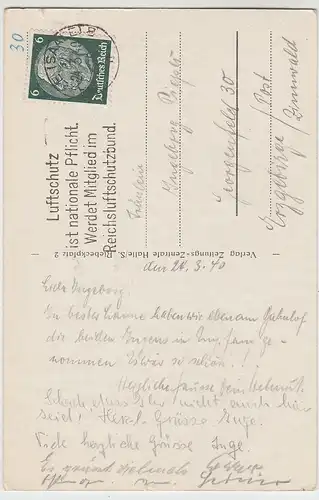 30
6 Deutsches Reich 6
Luftschutz
ist nationale Pflicht.
Werdet Mitglied im
Reichsluftschutzbund.
Fräulein
Ingeborg
Georgenfeld 30
/Post
Erzgebirge / Zinnwald
Verlag Zeitungs-Zentrale Halle/S. Riebeckplatz 2
den 24.3.40
Liebe Ingeborg!
In bester Laune haben wir eben am Bahnhof
die beiden Ingens in Empfang ge-
nommen. Es war so schön!
Herzliche Grüsse Dein Helmut.
Schade, dass Ihr nicht auch hier
seid! Herzl. Grüsse Inge.
Viele herzliche Grüsse Inge.
Es grüsst vielmals